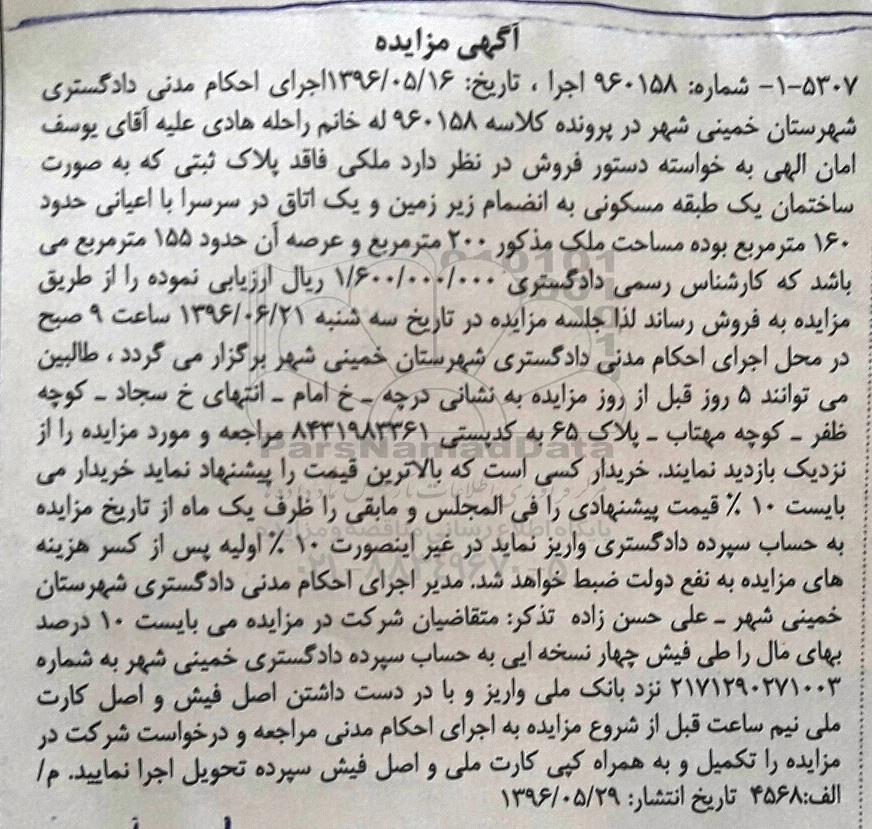 آگهی مزایده
۵۳۰۷-۱- شماره: ۹۶۰۱۵۸ اجرا ، تاریخ: ۱۳۹۶/۰۵/۱۶اجرای احکام مدنی دادگستری
شهرستان خمینی شهر در پرونده کلاسه ۹۶۰۱۵۸ له خانم راحله هادی علیه آقای یوسف
امان الهی به خواسته دستور فروش در نظر دارد ملکی فاقد پلاک ثبتی که به صورت
ساختمان یک طبقه مسکونی به انضمام زیر زمین و یک اتاق در سرسرا با اعیانی حدود
۱۶۰ مترمربع بوده مساحت ملک مذکور ۲۰۰ مترمربع و عرصه آن حدود ۱۵۵ مترمربع می
باشد که کارشناس رسمی دادگستری ۱/۶۰۰/۰۰۰/۰۰۰ ریال ارزیابی نموده را از طریق
مزایده به فروش رساند لذا جلسه مزایده در تاریخ سه شنبه ۱۳۹۶/۰۶/۲۱ ساعت ۹ صبح
در محل اجرای احکام مدنی دادگستری شهرستان خمینی شهر برگزار می گردد ، طالبین
می توانند ۵ روز قبل از روز مزایده به نشانی درچه ـ خ امام ـ انتهای خ سجاد ـ کوچه
ظفر ـ کوچه مهتاب ـ پلاک ۶۵ به کدپستی ۸۴۳۱۹۸۳۳۶۱ مراجعه و مورد مزایده را از
نزدیک بازدید نمایند. خریدار کسی است که بالاترین قیمت را پیشنهاد نماید خریدار می
بایست ۱۰ ٪ قیمت پیشنهادی را فی المجلس و مابقی را ظرف یک ماه از تاریخ مزایده
به حساب سپرده دادگستری واریز نماید در غیر اینصورت ۱۰ ٪ اولیه پس از کسر هزینه
های مزایده به نفع دولت ضبط خواهد شد. مدیر اجرای احکام مدنی دادگستری شهرستان
خمینی شهر ـ علی حسن زاده تذکر: متقاضیان شرکت در مزایده می بایست ۱۰ درصد
بهای مال را طی فیش چهار نسخه ایی به حساب سپرده دادگستری خمینی شهر به شماره
۲۱۷۱۲۹۰۲۷۱۰۰۳ نزد بانک ملی واریز و با در دست داشتن اصل فیش و اصل کارت
ملی نیم ساعت قبل از شروع مزایده به اجرای احکام مدنی مراجعه و درخواست شرکت در
مزایده را تکمیل و به همراه کپی کارت ملی و اصل فیش سپرده تحویل اجرا نمایید. م/
الف:۴۵۶۸ تاریخ انتشار: ۱۳۹۶/۰۵/۲۹
ParsNamadData
پایگاه اطلاع رسانی مناقصه و مزایده